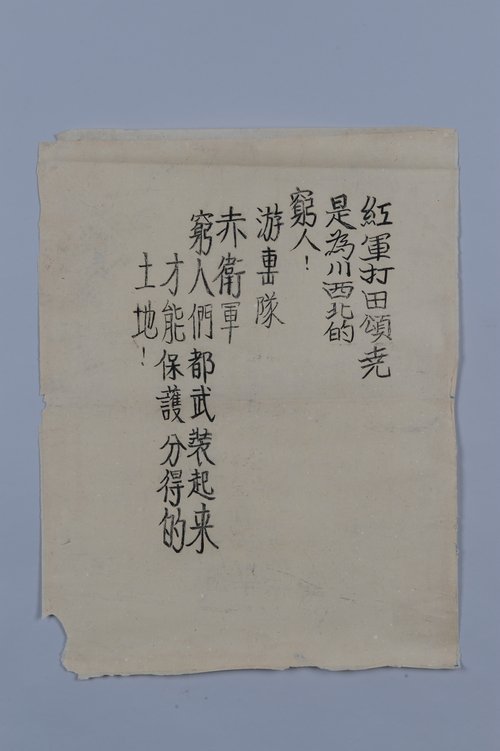 紅軍打田頌尭
是為川西北的
窮人！
游击隊
赤衛軍
窮人們都武装起来
才能保護分得的
土地！